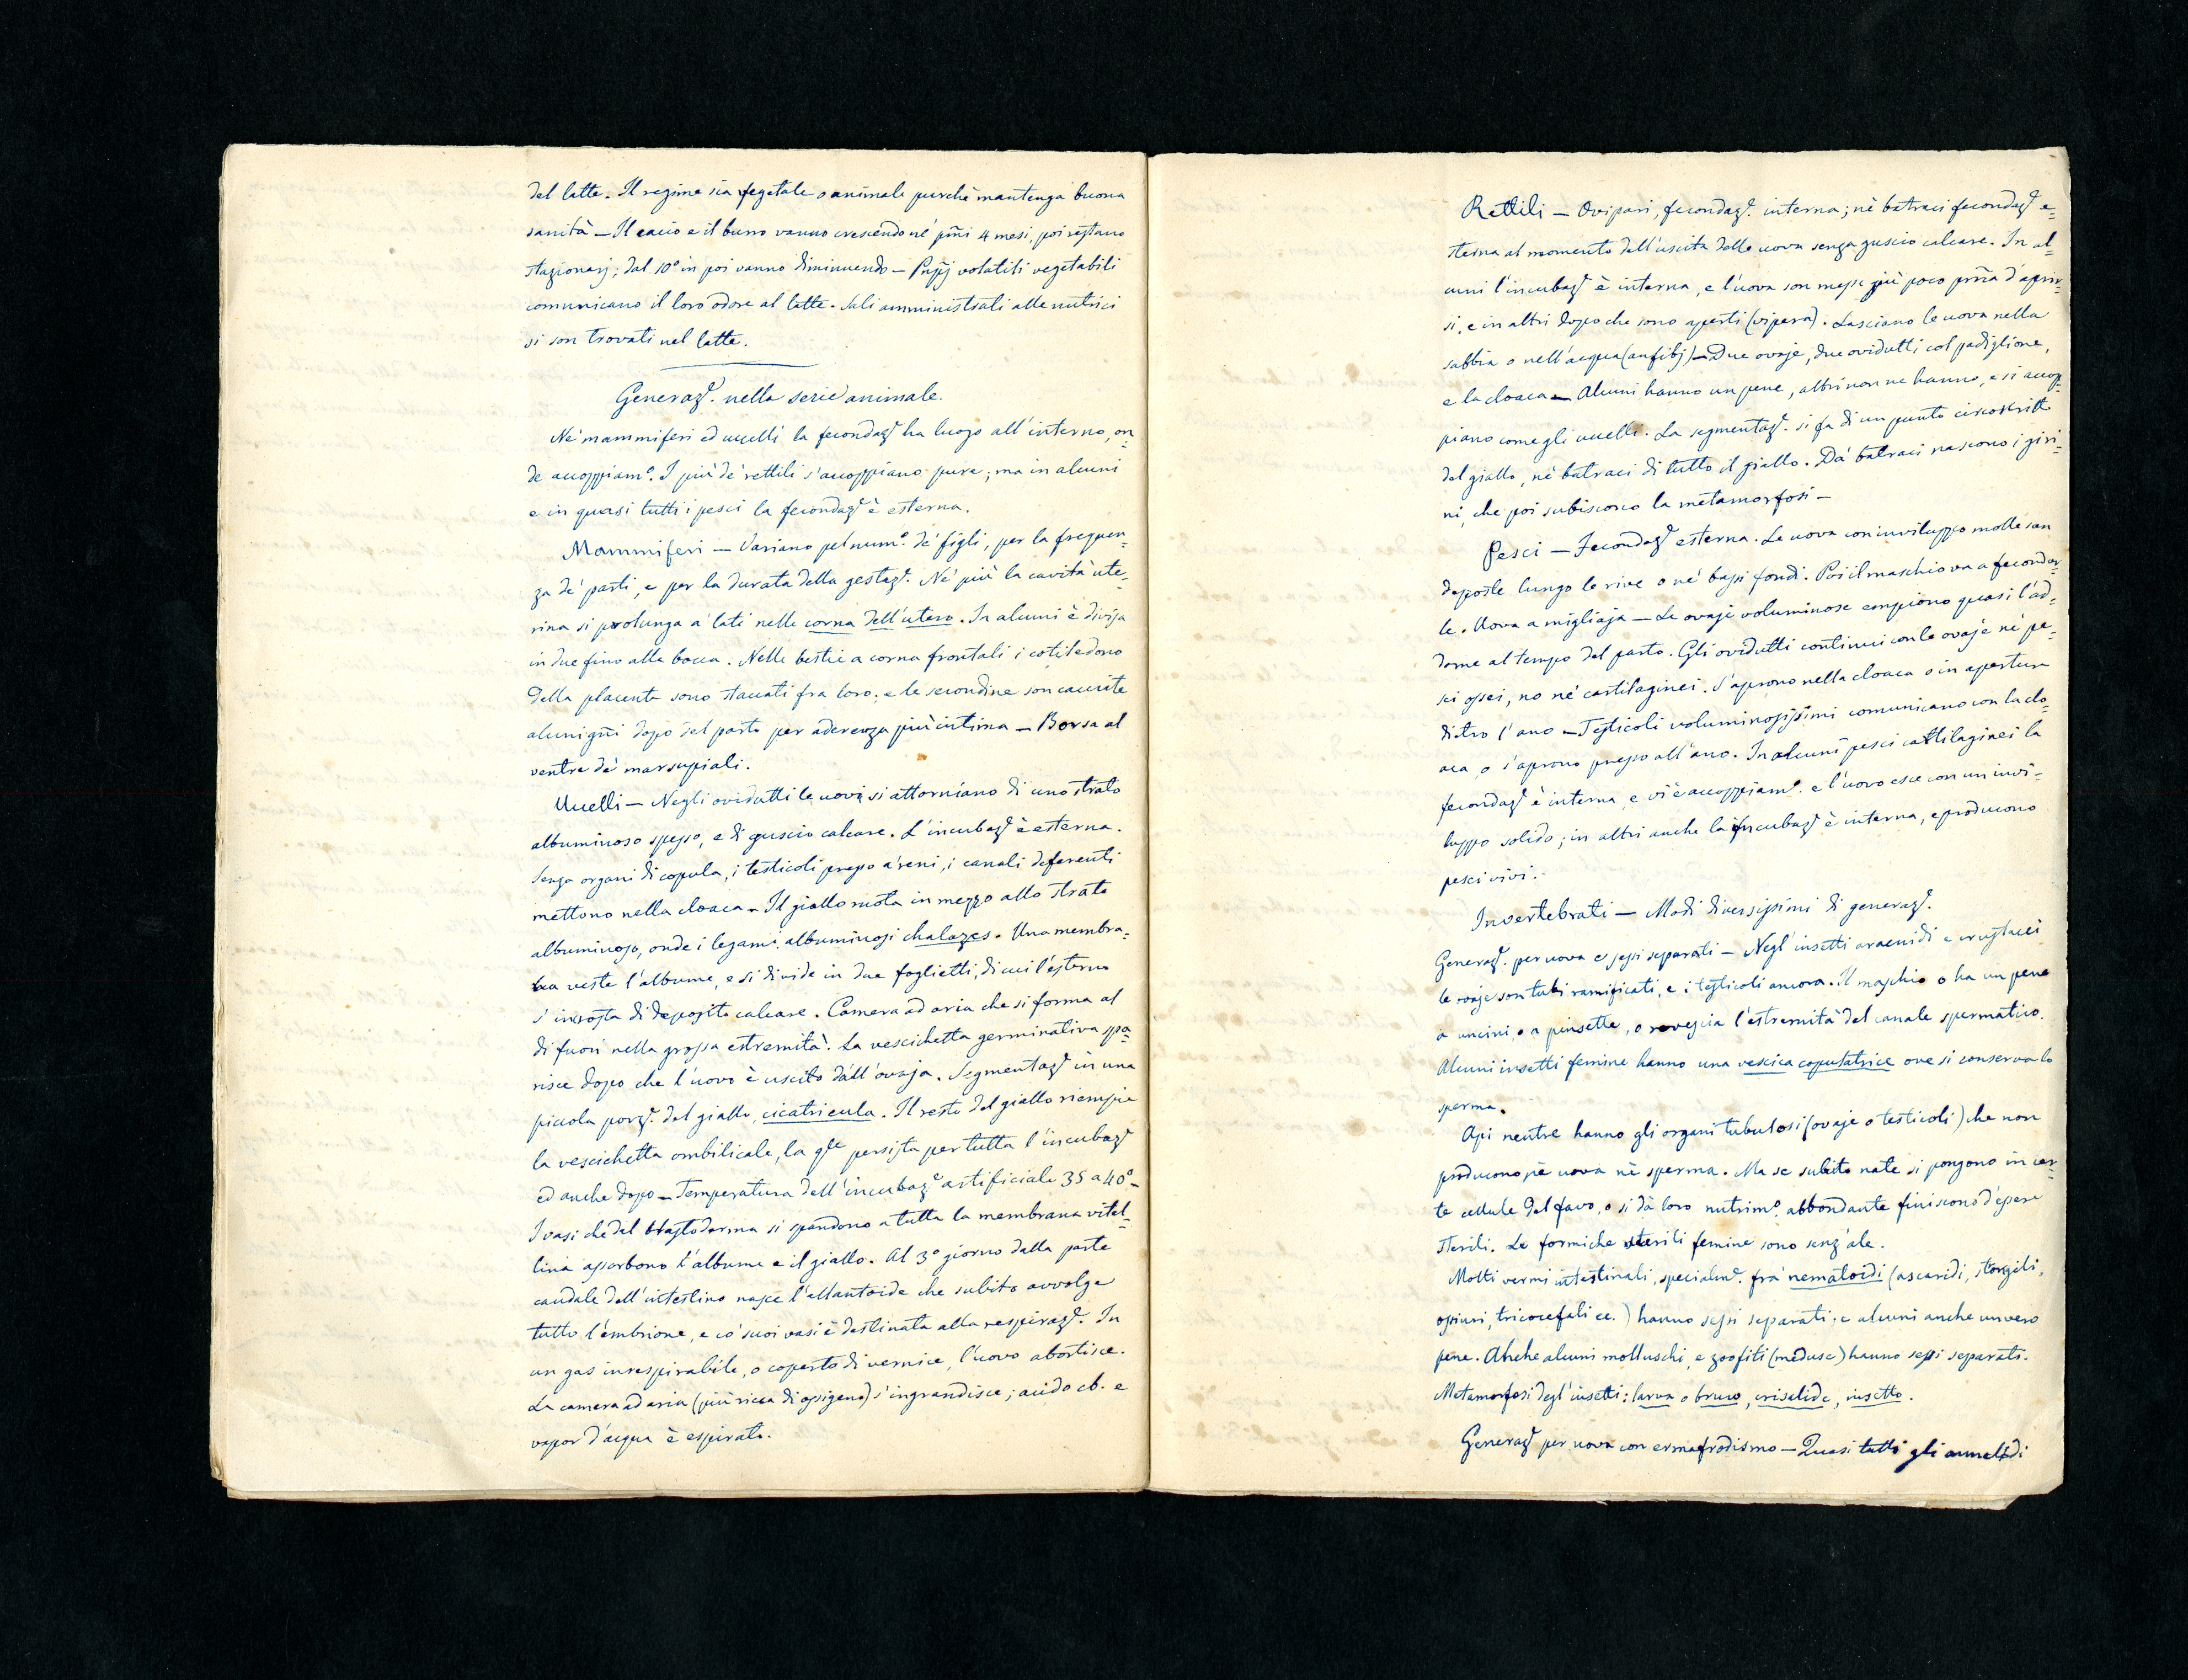 del latte. Il regime sia vegetale o animale purchè mantenga buona
sanità — Il cacio e il burro vanno crescendo né pm̃i 4 mesi, poi restano
stazionarj; dal 10° in poi vanno diminuendo — volatili vegetabili
comunicano il loro odore al latte. Sali amministrati alle nutrici
si son trovati nel latte.
Generaze. nella serie animale.
Né mammiferi ed uccelli la fecondaze ha luogo all'interno, on=
de accoppiamo. I più dè rettili s'accoppiano pure; ma in alcuni
e in quasi tutti i pesci la fecondaze è esterna.
Mammiferi — Variano pel numo. dè figli, per la frequen=
za dè parti, e per la durata della gestaze. Nè più la cavità ute=
rina si prolunga a' lati nelle corna dell'utero. In alcuni è divisa
in due fino alla bocca. Nelle bestie a corna frontali i cotiledono
della placenta sono staccati fra loro; e le secondine son cacciate
alcuni gñi dopo del parto per aderenza più intima — Borsa al
ventre dè marsupiali.
Uccelli — Negli ovidutti le uova si attorniano di uno strato
albuminoso spesso, e di guscio calcare. L'incubaze è esterna.
Senza organi di copula, i testicoli presso a' reni, i canali deferenti
mettono nella cloaca — Il giallo ruota in mezzo allo strato
albuminoso, onde i legami albuminosi chalazes. Una membra=
na veste l'albume, e si divide in due foglietti, di cui l'esterno
s'incrosta di deposito calcare. Camera ad aria che si forma al
di fuori nella grossa estremità. La vescichetta germinativa spa=
risce dopo che l'uovo è uscito dall'ovaja. Segmentaze in una
piccola porze. del giallo, cicatricula. Il resto del giallo riempie
la vescichetta ombilicale, la qle persista per tutta l'incubaze
ed anche dopo — Temperatura dell'incubaze artificiale 35 a 40° —
I vasi che dal blastoderma si spandono a tutta la membrana vitel=
lina assorbono l'albume e il giallo. Al 3° giorno dalla parte
caudale dell'intestino nasce l'allantoide che subito avvolge
tutto l'embrione, e co' suoi vasi è destinata alla respiraze. In
un gas irrespirabile, o coperto di vernice, l'uovo abortisce.
La camera ad aria (più ricca di ossigeno) s'ingrandisce; acido cb. e
vapor d'acqua è espirato.
Rettili — Ovipari, fecondaze. interna; nè batraci fecondaze e=
sterna al momento dell'uscita delle uova senza guscio calcare. In al=
cuni l'incubaze è interna, e l'uova son messe giù poco pr̃ia d'aprir=
si, e in altri dopo che sono aperti (vipera). Lasciano le uova nella
sabbia o nell'acqua (anfibj) — Due ovaje, due ovidutti col padiglione,
e la cloaca — Alcuni hanno un pene, altri non ne hanno, e si accop=
piano come gli uccelli. La segmentaze. si fa di un punto circoscritto
del giallo, nè batraci di tutto il giallo. Da' batraci nascono i giri=
ni, che poi subiscono la metamorfosi —
Pesci — Fecondaze esterna. Le uova con inviluppo molle son
deposte lungo le rive o nè bassi fondi. Poi il maschio va a fecondar=
le. Uova a migliaja — Le ovaje voluminose empiono quasi l'ad=
dome al tempo del parto. Gli ovidutti continui con le ovaje nè pe=
sci ossei, no nè cartilaginei. S'aprono nella cloaca o in apertura
dietro l'ano — Testicoli voluminosissimi comunicano con la clo=
aca, o s'aprono presso all'ano. In alcuni pesci cartilaginei la
fecondaze è interna, e vi è accoppiamo. e l'uovo esce con un invi=
luppo solido; in altri anche la incubaze è interna, e producono
pesci vivi.
Invertebrati — Modi diversissimi di generaze.
Generaze. per uova e sessi separati — Negl'insetti aracnidi e crustacei
le ovaje son tubi ramificati, e i testicoli ancora. Il maschio o ha un pene
a uncini, o a pinsette, o rovescia l'estremità del canale spermatico.
Alcuni insetti femine hanno una vescica copulatrice ove si conserva lo
sperma.
Api neutre hanno gli organi tubulosi (ovaje o testicoli) che non
producono nè uova nè sperma. Ma se subito nate si pongono in cer=
te cellule del favo, o si dà loro nutrimo. abbondante finiscono d'essere
sterili. Le formiche sterili femine sono senz'ale.
Molti vermi intestinali, specialme. fra' nematoidi (ascaridi, strongili,
ossiuri, tricocefali ec.) hanno sessi separati; e alcuni anche un vero
pene. Anche alcuni molluschi, e zoofiti (meduse) hanno sessi separati.
Metamorfosi degl'insetti: larva o bruco, crisalide, insetto.
Generaze per uova con ermafrodismo — Quasi tutti gli annelidi